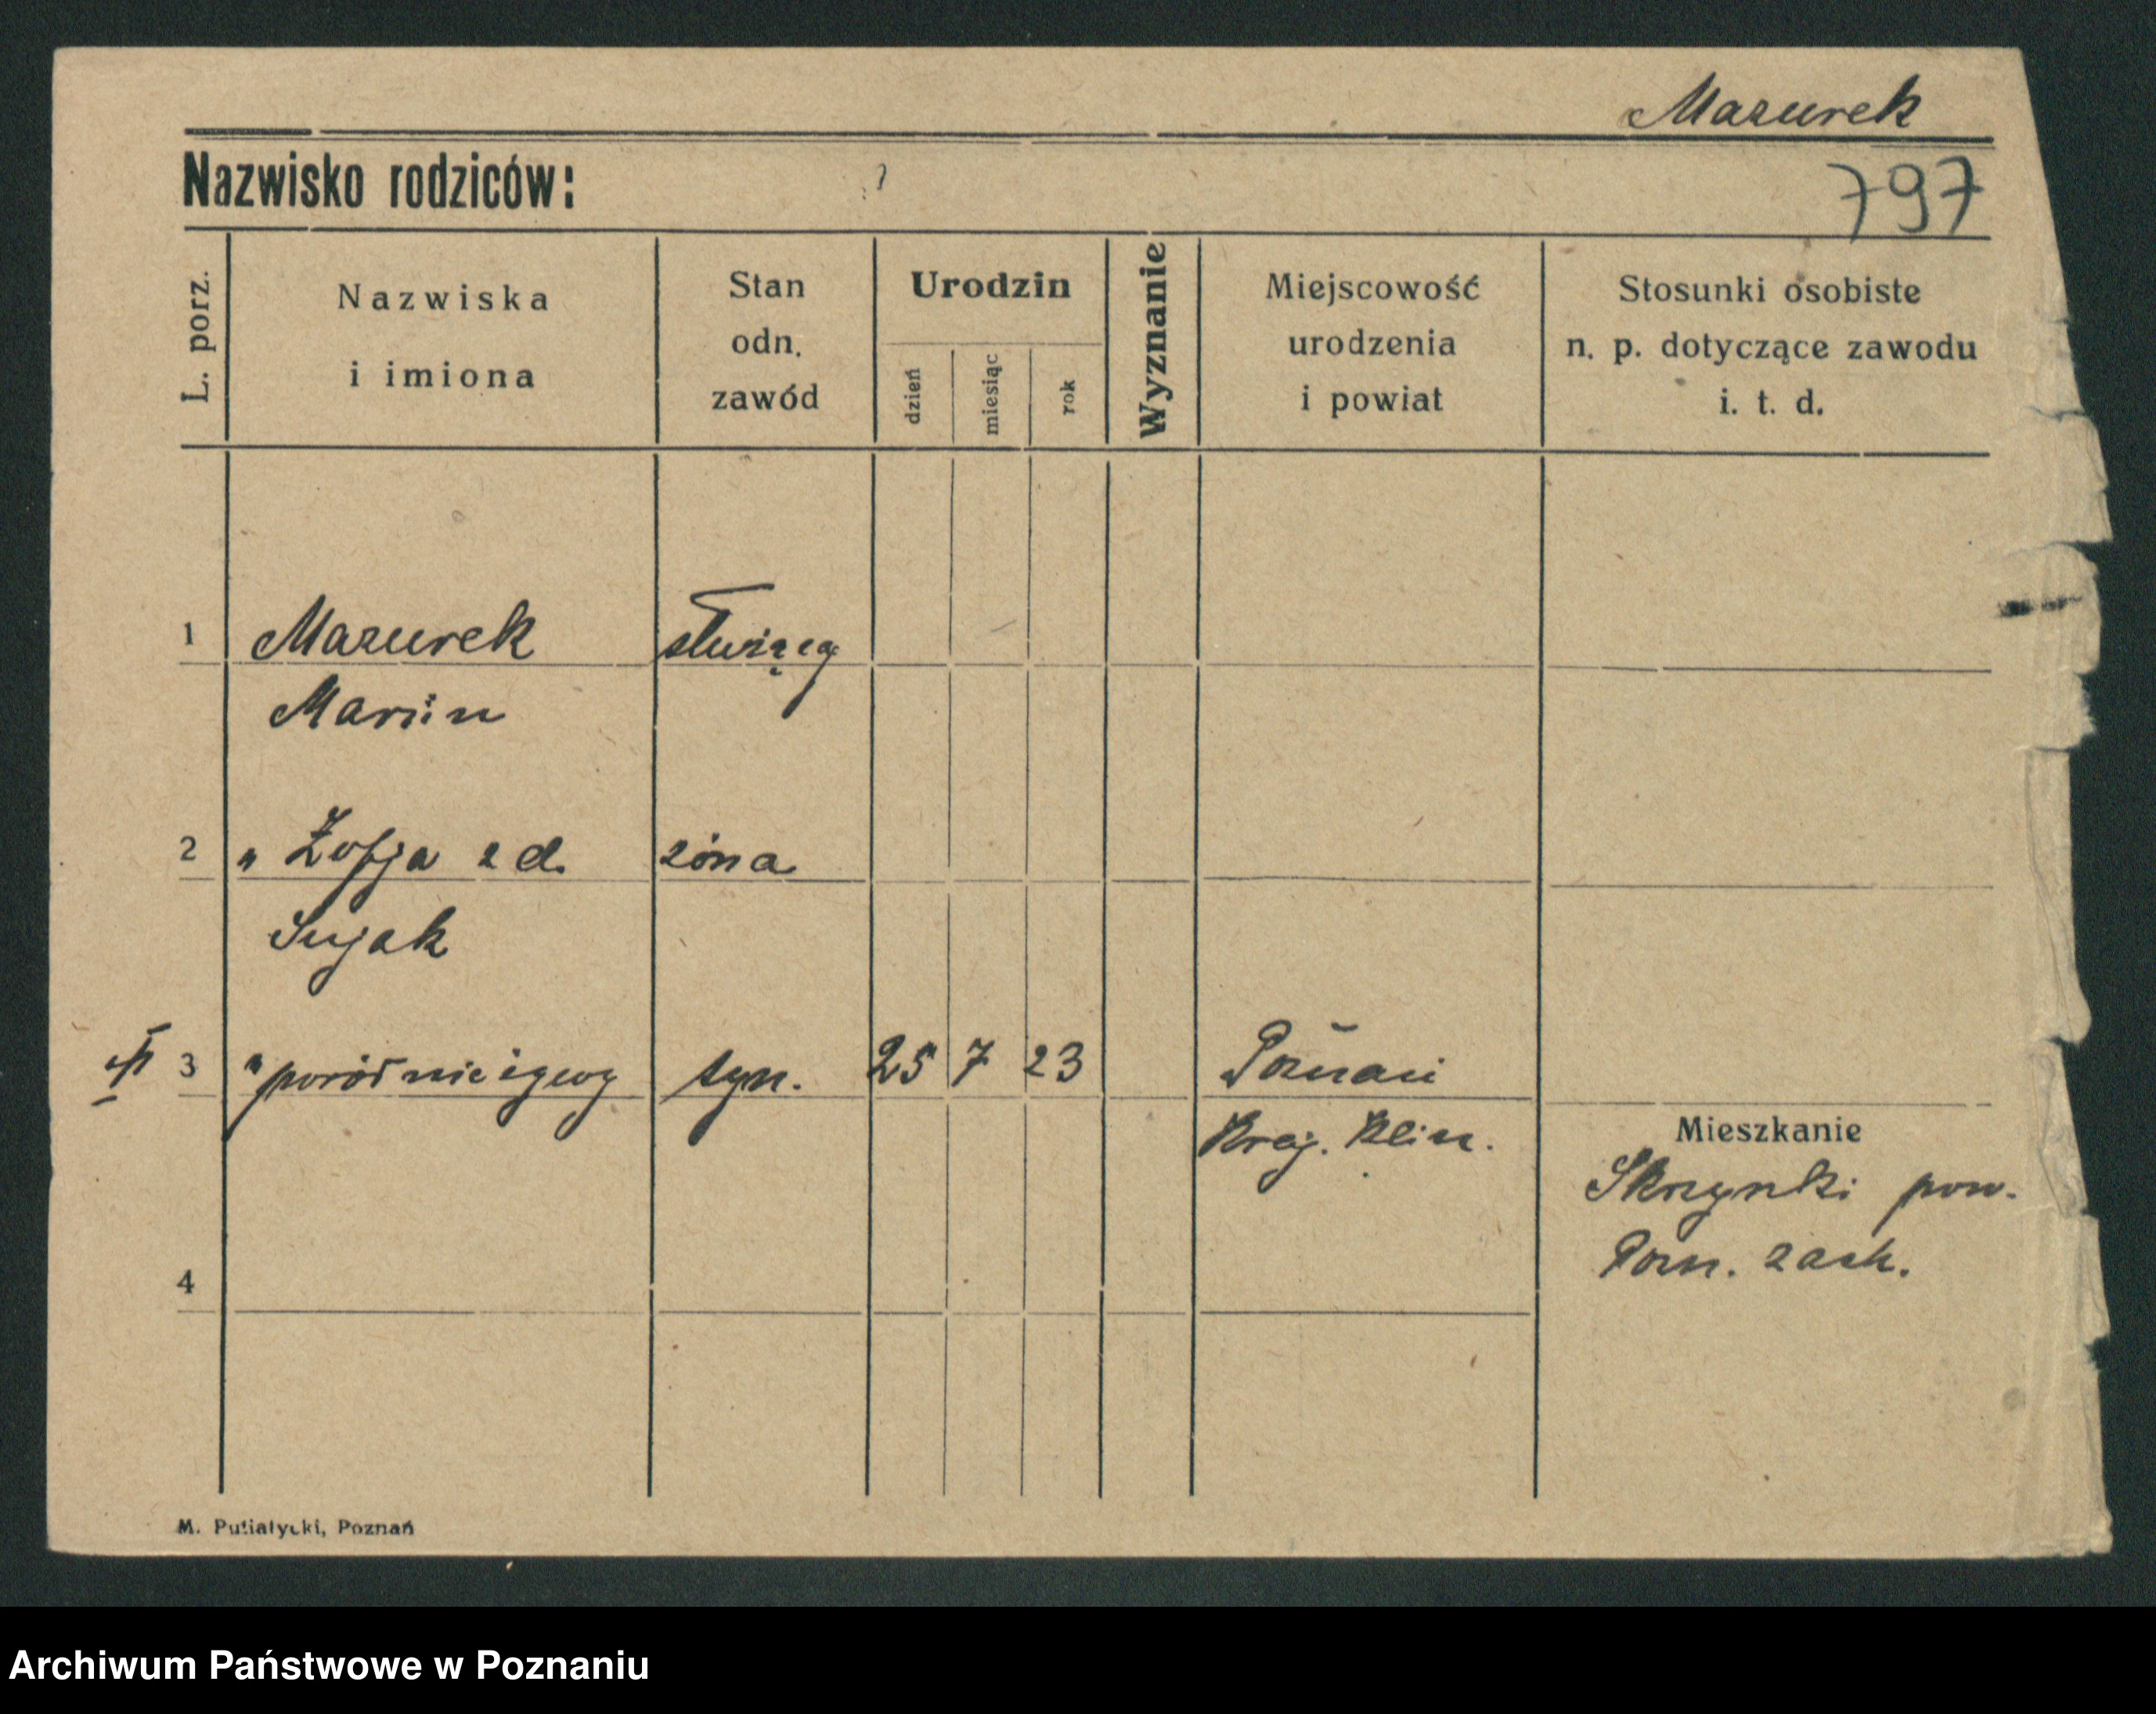 Mazurek
Nazwisko rodziców: ?
797
L. porz.
Nazwiska
i imiona
Stan
odn.
zawód
Urodzin
dzień
miesiąc
rok
Wyznanie
Miejscowość
urodzenia
i powiat
Stosunki osobiste
n. p. dotyczące zawodu
i. t. d.
1 Mazurek służący
Marcin
2 " Zofja z d. żona
Sujak
3 " poród nieżywy syn. 25 7 23 Poznań
Kraj. Klin.
Mieszkanie
Skrzynki pow.
Pozn. zach.
4
M. Putiatycki, Poznań
Archiwum Państwowe w Poznaniu